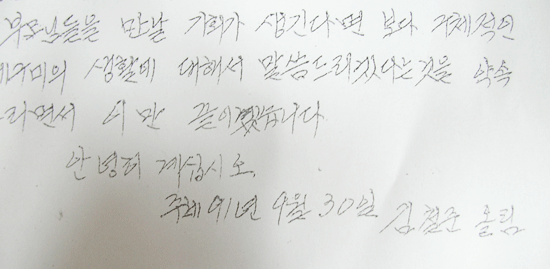 부모님들을 만날 기회가 생긴다면 보다 구체적인
의 생활에 대해서 말씀드리겠다는것을 약속
라면서 이만 끝이겠습니다
안녕히 계십시오.
주체 91년 9월 30일 김철준 올림